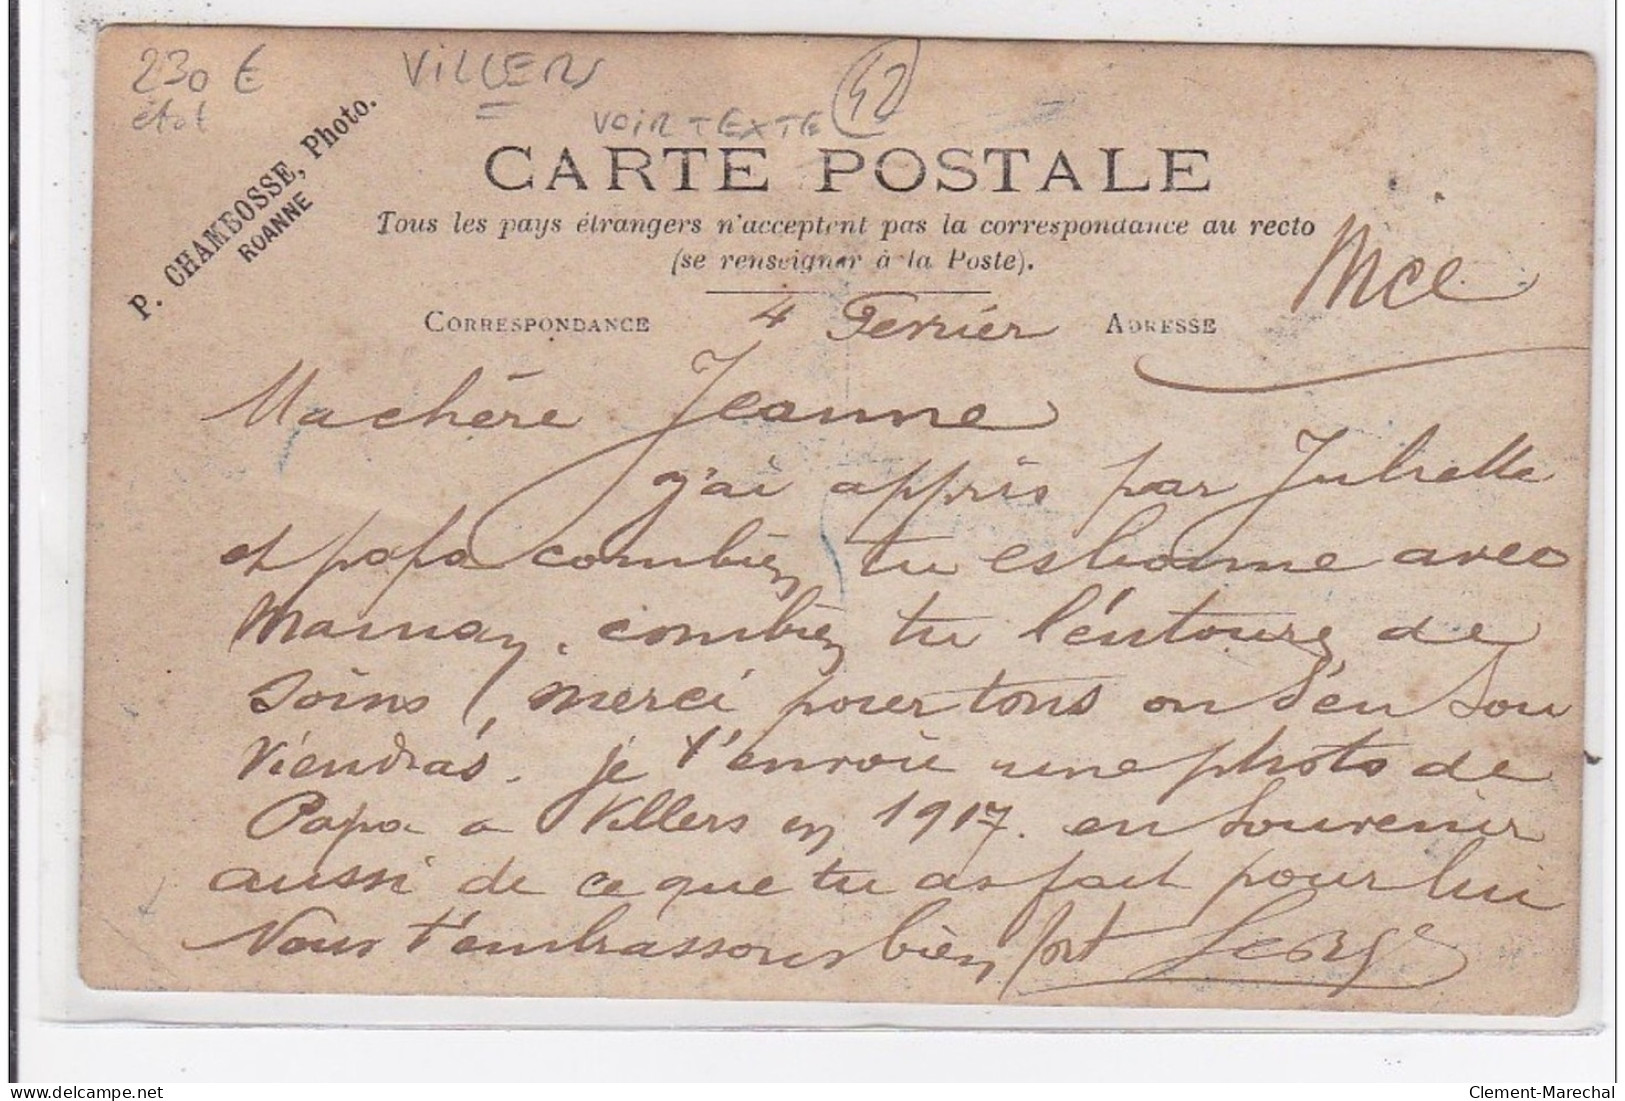 230 €
état
VILLERS
42
VOIR TEXTE
P. CHAMBOSSE, Photo.
ROANNE
CARTE POSTALE
Tous les pays étrangers n'acceptent pas la correspondance au recto
(se renseigner à la Poste).
CORRESPONDANCE
4 Fevrier
ADRESSE
Mce
Ma chére Jeanne
j'ai appris par Juliette
et papa combien tu es bonne avec
Maman, combien tu l'entoure de
soins, merci pour tous on s'en sou
viendras. je t'envoie une photo de
Papa a Villers en 1917. en souvenir
aussi de ce que tu as fait pour lui
Nous t'embrassons bien fort
Clement-Marechal
www.delcampe.net